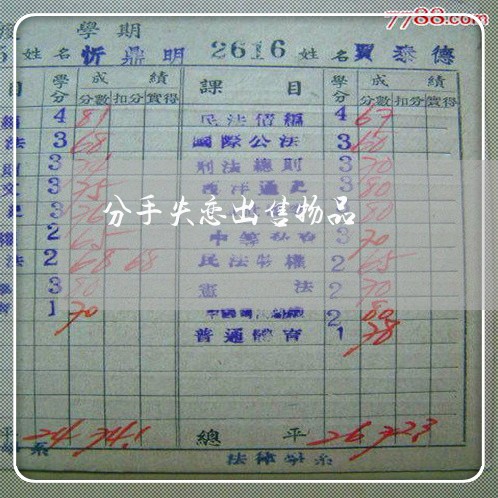 7788.com
學期
姓名 忻鼎明 2616 姓名 賈泰德
目 學分 成績 課目 學分 成績
分數 扣分 實得 分數 扣分 實得
4 81 民法債編 4 67
法 3 68 國際公法 3 60
3 刑法總則 3 70
3 75 西洋通史 3 80
3 3 80
分手失恋出售物品
2 65 3 70
法 2 68 68 民法物權 2 65
3 80 憲法 2 70
1 70 2 80
普通體育 1 78
平 24 74.1 總平 26 72.3
系 法律學系